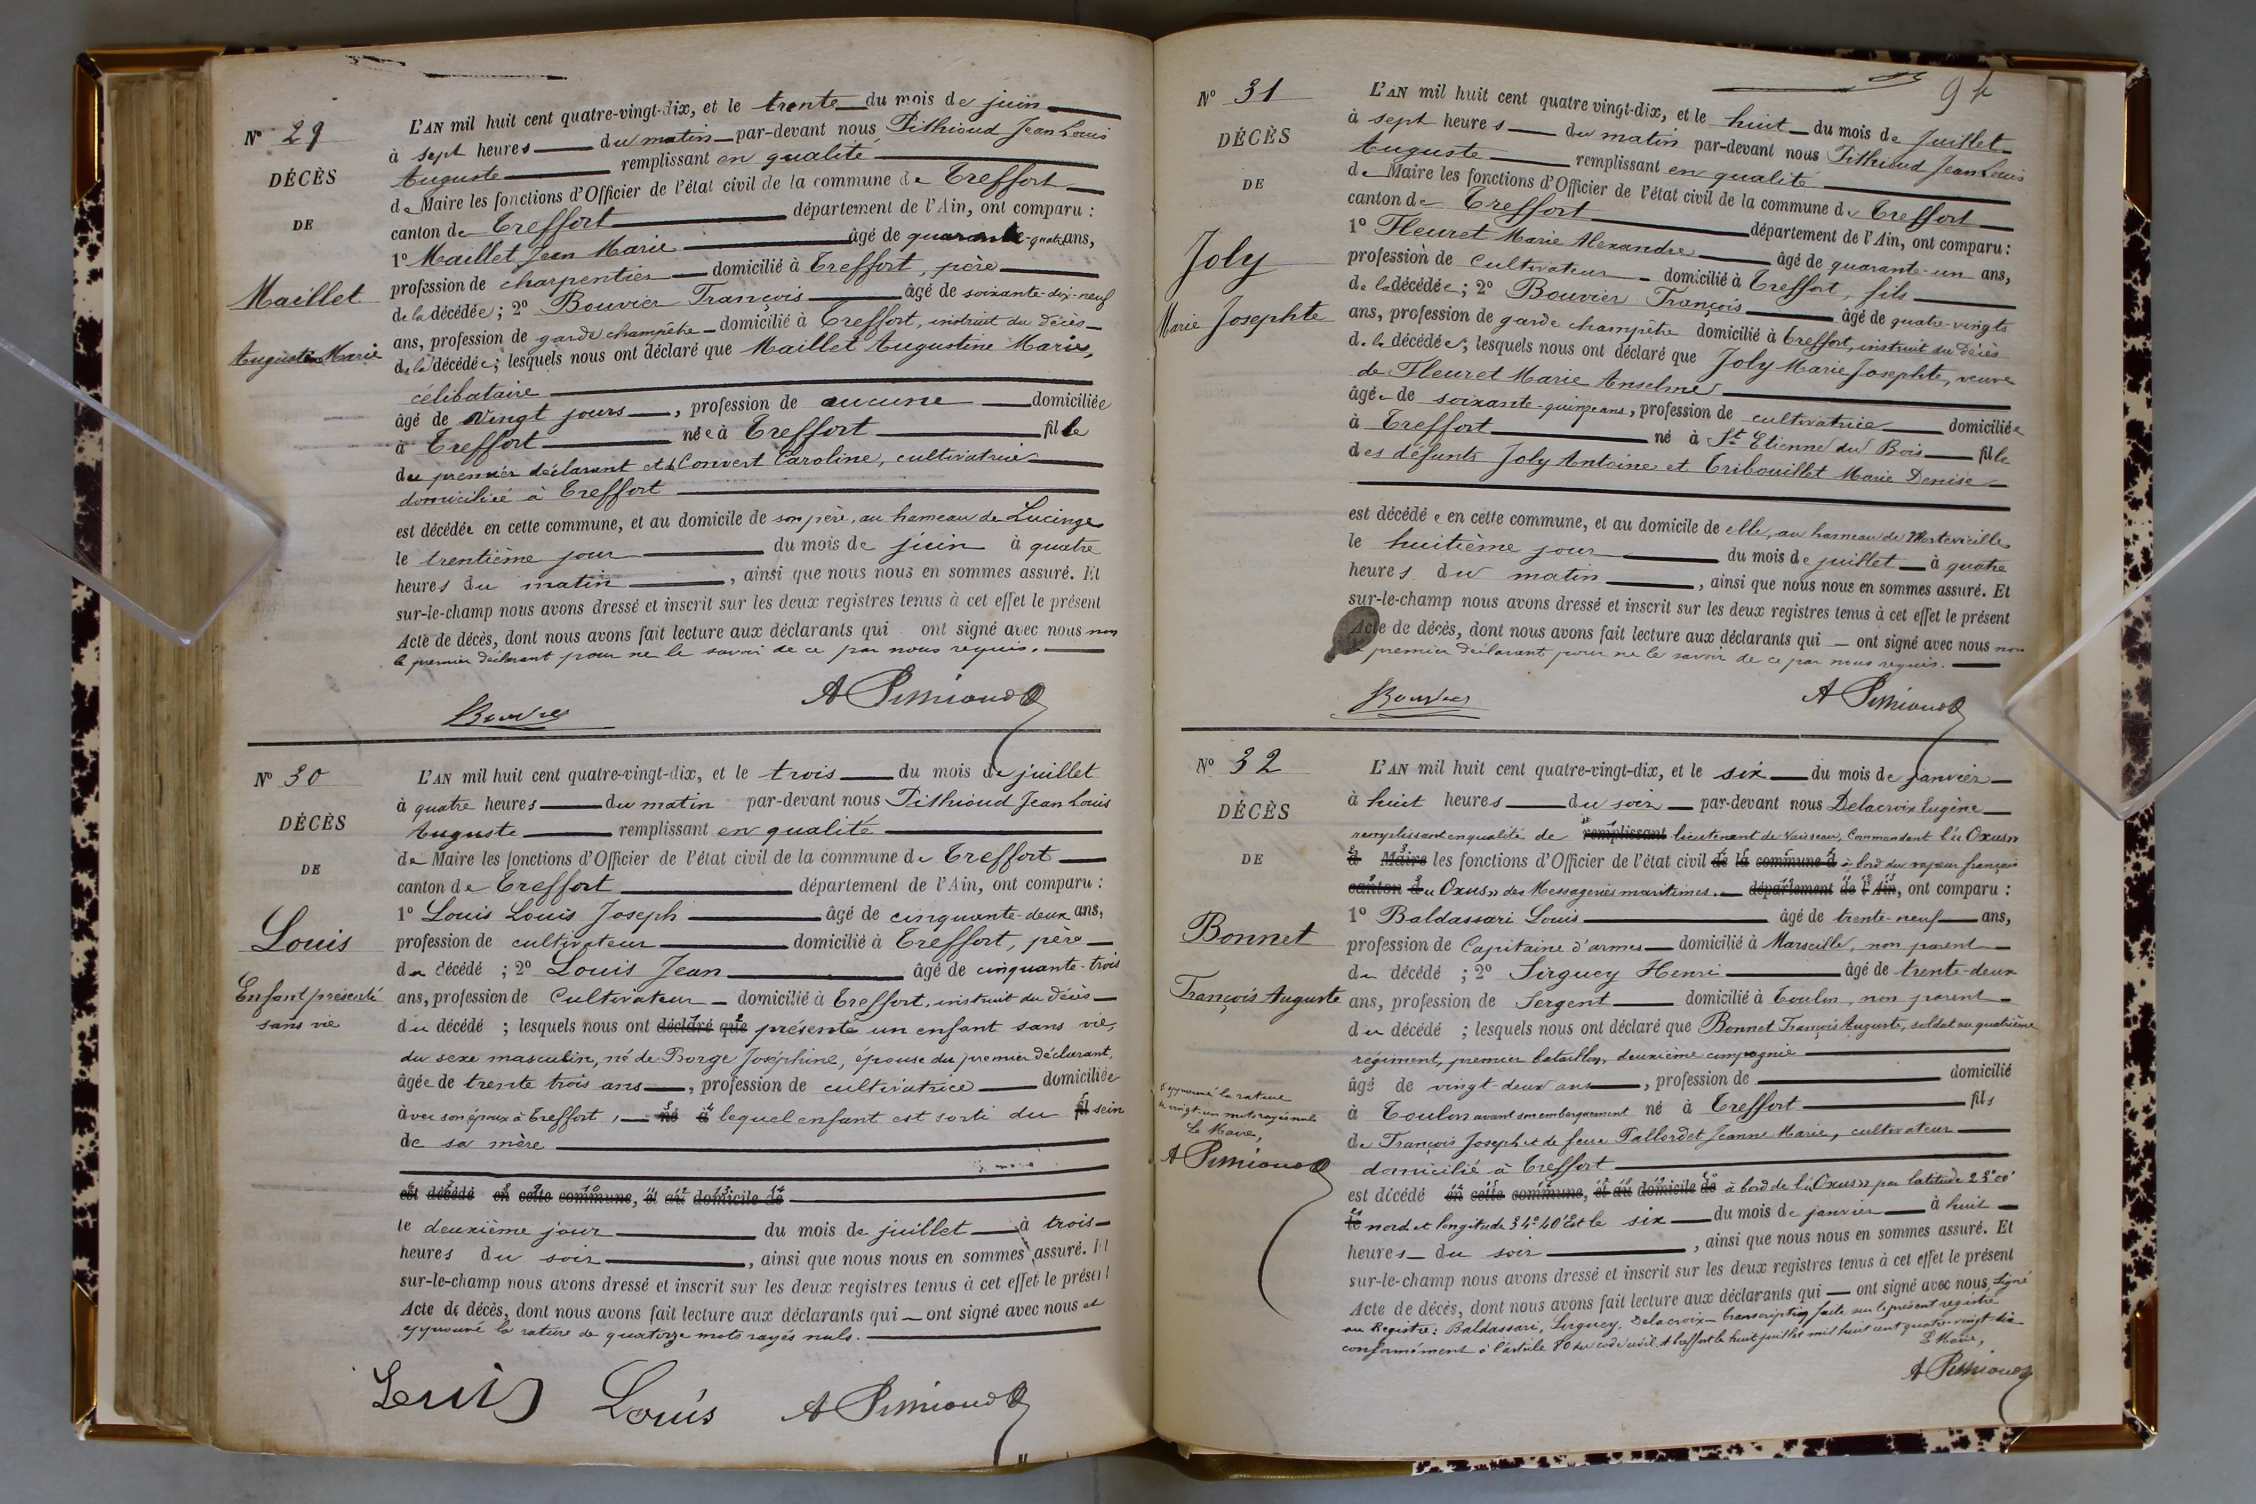 N° 29
DÉCÈS
DE
Maillet
Augustine Marie
L'AN mil huit cent quatre-vingt-dix, et le trente du mois de juin
à sept heures du matin par-devant nous Pithioud Jean Louis
Auguste remplissant en qualité
de Maire les fonctions d'Officier de l'état civil de la commune de Treffort
canton de Treffort département de l'Ain, ont comparu :
1° Maillet Jean Marie âgé de quarante-quatre ans,
profession de charpentier domicilié à Treffort, père
de la décédée ; 2° Bouvier François âgé de soixante-dix-neuf
ans, profession de garde champêtre domicilié à Treffort, instruit du décès
de la décédée ; lesquels nous ont déclaré que Maillet Augustine Marie,
célibataire
âgé de vingt jours, profession de aucune domiciliée
à Treffort née à Treffort fille
du premier déclarant et de Convert Caroline, cultivatrice
domiciliée à Treffort
est décédée en cette commune, et au domicile de son père, au hameau de Lucinges
le trentième jour du mois de juin à quatre
heures du matin, ainsi que nous nous en sommes assuré. Et
sur-le-champ nous avons dressé et inscrit sur les deux registres tenus à cet effet le présent
Acte de décès, dont nous avons fait lecture aux déclarants qui ont signé avec nous non
le premier déclarant pour ne le savoir de ce par nous requis.
Bouvier A Pithioud
N° 30
DÉCÈS
DE
Louis
Enfant présenté
sans vie
L'AN mil huit cent quatre-vingt-dix, et le trois du mois de juillet
à quatre heures du matin par-devant nous Pithioud Jean Louis
Auguste remplissant en qualité
de Maire les fonctions d'Officier de l'état civil de la commune de Treffort
canton de Treffort département de l'Ain, ont comparu :
1° Louis Louis Joseph âgé de cinquante-deux ans,
profession de cultivateur domicilié à Treffort, père
du décédé ; 2° Louis Jean âgé de cinquante-trois
ans, profession de Cultivateur domicilié à Treffort, instruit du décès
du décédé ; lesquels nous ont déclaré que présenté un enfant sans vie,
du sexe masculin, né de Borge Joséphine, épouse du premier déclarant,
âgée de trente trois ans, profession de cultivatrice domiciliée
avec son époux à Treffort, né à lequel enfant est sorti du fil sein
de sa mère
est décédé en cette commune, et au domicile de
le deuxième jour du mois de juillet à trois
heures du soir, ainsi que nous nous en sommes assuré. Et
sur-le-champ nous avons dressé et inscrit sur les deux registres tenus à cet effet le présent
Acte de décès, dont nous avons fait lecture aux déclarants qui ont signé avec nous et
approuvé la rature de quatorze mots rayés nuls.
Louis Louis A Pithioud
94
N° 31
DÉCÈS
DE
Joly
Marie Josephte
L'AN mil huit cent quatre vingt-dix, et le huit du mois de Juillet
à sept heures du matin par-devant nous Pithioud Jean Louis
Auguste remplissant en qualité
de Maire les fonctions d'Officier de l'état civil de la commune de Treffort
canton de Treffort département de l'Ain, ont comparu :
1° Fleuret Marie Alexandre âgé de quarante-un ans,
profession de Cultivateur domicilié à Treffort, fils
de la décédée ; 2° Bouvier François âgé de quatre-vingts
ans, profession de garde champêtre domicilié à Treffort, instruit du décès
de la décédée ; lesquels nous ont déclaré que Joly Marie Josephte, veuve
de Fleuret Marie Anselme
âgée de soixante-quinze ans, profession de cultivatrice domiciliée
à Treffort né à St Etienne du Bois fille
des défunts Joly Antoine et Tribouillet Marie Denise
est décédée en cette commune, et au domicile de elle, au hameau de Montevieille
le huitième jour du mois de juillet à quatre
heures du matin, ainsi que nous nous en sommes assuré. Et
sur-le-champ nous avons dressé et inscrit sur les deux registres tenus à cet effet le présent
Acte de décès, dont nous avons fait lecture aux déclarants qui ont signé avec nous non
le premier déclarant pour ne le savoir de ce par nous requis.
Bouvier A Pithioud
N° 32
DÉCÈS
DE
Bonnet
François Auguste
approuvé la rature
de vingt-un mots rayés nuls
Le Maire,
A Pithioud
L'AN mil huit cent quatre-vingt-dix, et le six du mois de janvier
à huit heures du soir par-devant nous Delacroix Eugène
remplissant en qualité de remplissant lieutenant de Vaisseau, Commandant l'« Oxus »
d Maire les fonctions d'Officier de l'état civil de la commune d à bord du vapeur français
canton du « Oxus » des Messageries maritimes. département de l'Ain, ont comparu :
1° Baldassari Louis âgé de trente-neuf ans,
profession de Capitaine d'armes domicilié à Marseille, non parent
du décédé ; 2° Sirguey Henri âgé de trente-deux
ans, profession de Sergent domicilié à Toulon, non parent
du décédé ; lesquels nous ont déclaré que Bonnet François Auguste, soldat au quatrième
régiment, premier bataillon, deuxième compagnie
âgé de vingt-deux ans, profession de domicilié
à Toulon avant son embarquement né à Treffort fils
de François Joseph et de feue Pallordet Jeanne Marie, cultivateur
domicilié à Treffort
est décédé en cette commune, et au domicile de à bord de l'« Oxus » par latitude 23° 00'
le nord et longitude 34° 40' Est le six du mois de janvier à huit
heures du soir, ainsi que nous nous en sommes assuré. Et
sur-le-champ nous avons dressé et inscrit sur les deux registres tenus à cet effet le présent
Acte de décès, dont nous avons fait lecture aux déclarants qui ont signé avec nous, Signé
au Registre : Baldassari, Sirguey, Delacroix transcription faite sur le présent registre
conformément à l'article 80 du code civil. A Treffort le huit juillet mil huit cent quatre-vingt-dix
Le Maire,
A Pithioud